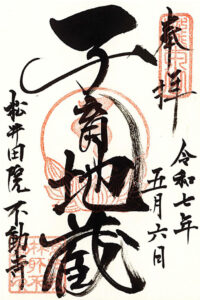 奉拝
令和七年
五月六日
子育地蔵
松井田院 不動寺